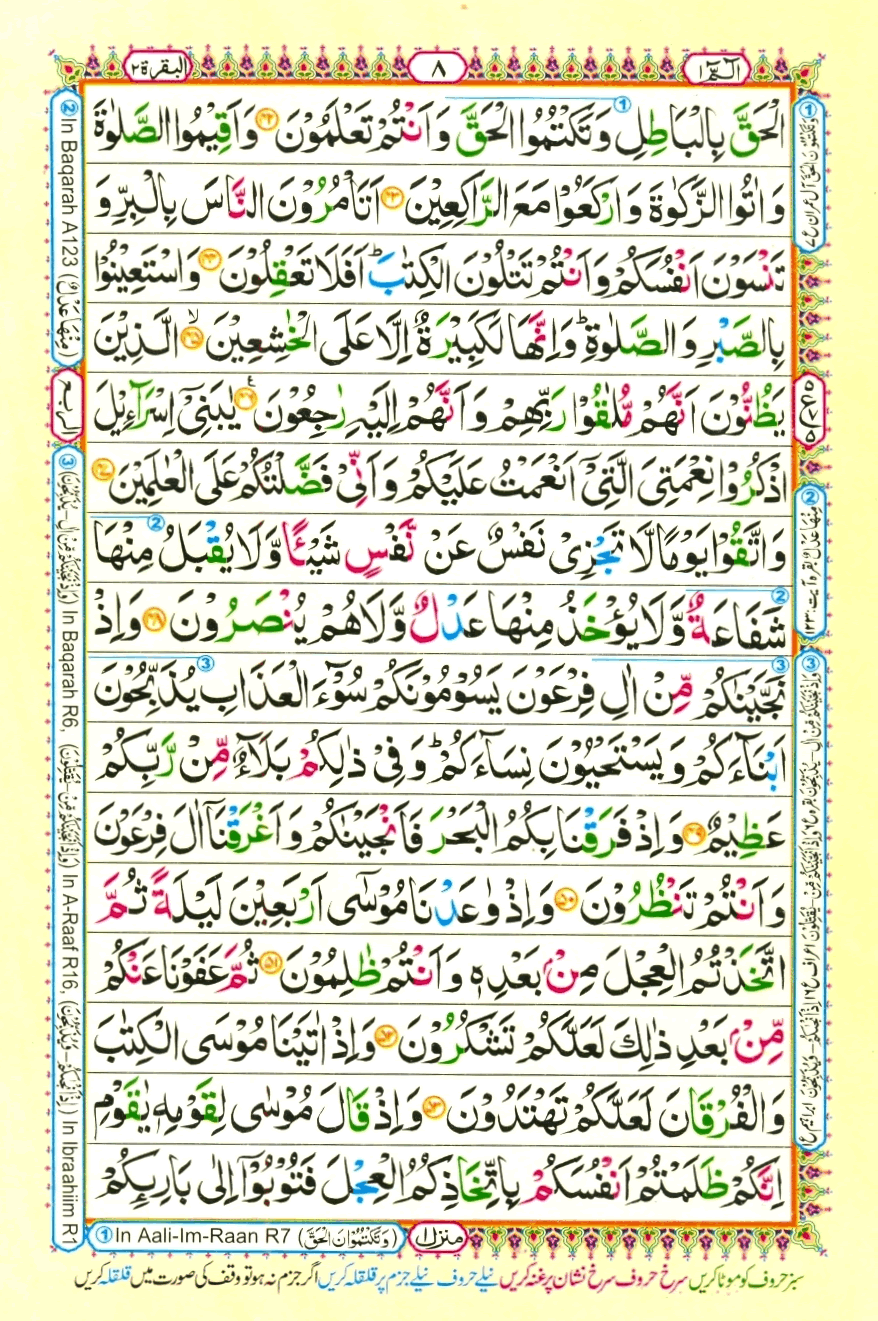 الٓمّٓ ١
٨
البقرة ٢
الْحَقَّ بِالْبَاطِلِ وَتَكْتُمُوا الْحَقَّ وَاَنْتُمْ تَعْلَمُوْنَ ﴿۴۲﴾ وَاَقِيْمُوا الصَّلٰوةَ
وَاٰتُوا الزَّكٰوةَ وَارْكَعُوْا مَعَ الرّٰكِعِيْنَ ﴿۴۳﴾ اَتَاْمُرُوْنَ النَّاسَ بِالْبِرِّ وَ
تَنْسَوْنَ اَنْفُسَكُمْ وَاَنْتُمْ تَتْلُوْنَ الْكِتٰبَ ؕ اَفَلَا تَعْقِلُوْنَ ﴿۴۴﴾ وَاسْتَعِيْنُوْا
بِالصَّبْرِ وَالصَّلٰوةِ ؕ وَاِنَّهَا لَكَبِيْرَةٌ اِلَّا عَلَى الْخٰشِعِيْنَ ﴿۴۵﴾ۙ الَّذِيْنَ
يَظُنُّوْنَ اَنَّهُمْ مُّلٰقُوْا رَبِّهِمْ وَاَنَّهُمْ اِلَيْهِ رٰجِعُوْنَ ﴿۴۶﴾ يٰبَنِيْٓ اِسْرَآءِيْلَ
اذْكُرُوْا نِعْمَتِيَ الَّتِيْٓ اَنْعَمْتُ عَلَيْكُمْ وَاَنِّيْ فَضَّلْتُكُمْ عَلَى الْعٰلَمِيْنَ ﴿۴۷﴾
وَاتَّقُوْا يَوْمًا لَّا تَجْزِيْ نَفْسٌ عَنْ نَّفْسٍ شَيْـًٔا وَّلَا يُقْبَلُ مِنْهَا
شَفَاعَةٌ وَّلَا يُؤْخَذُ مِنْهَا عَدْلٌ وَّلَا هُمْ يُنْصَرُوْنَ ﴿۴۸﴾ وَاِذْ
نَجَّيْنٰكُمْ مِّنْ اٰلِ فِرْعَوْنَ يَسُوْمُوْنَكُمْ سُوْٓءَ الْعَذَابِ يُذَبِّحُوْنَ
اَبْنَآءَكُمْ وَيَسْتَحْيُوْنَ نِسَآءَكُمْ ؕ وَفِيْ ذٰلِكُمْ بَلَآءٌ مِّنْ رَّبِّكُمْ
عَظِيْمٌ ﴿۴۹﴾ وَاِذْ فَرَقْنَا بِكُمُ الْبَحْرَ فَاَنْجَيْنٰكُمْ وَاَغْرَقْنَآ اٰلَ فِرْعَوْنَ
وَاَنْتُمْ تَنْظُرُوْنَ ﴿۵۰﴾ وَاِذْ وٰعَدْنَا مُوْسٰٓى اَرْبَعِيْنَ لَيْلَةً ثُمَّ
اتَّخَذْتُمُ الْعِجْلَ مِنْۢ بَعْدِهٖ وَاَنْتُمْ ظٰلِمُوْنَ ﴿۵۱﴾ ثُمَّ عَفَوْنَا عَنْكُمْ
مِّنْۢ بَعْدِ ذٰلِكَ لَعَلَّكُمْ تَشْكُرُوْنَ ﴿۵۲﴾ وَاِذْ اٰتَيْنَا مُوْسَى الْكِتٰبَ
وَالْفُرْقَانَ لَعَلَّكُمْ تَهْتَدُوْنَ ﴿۵۳﴾ وَاِذْ قَالَ مُوْسٰى لِقَوْمِهٖ يٰقَوْمِ
اِنَّكُمْ ظَلَمْتُمْ اَنْفُسَكُمْ بِاتِّخَاذِكُمُ الْعِجْلَ فَتُوْبُوْٓا اِلٰى بَارِئِكُمْ
② In Baqarah A123 (مِنْهَا عَدْلٌ)
الربع
③ (وَاِذْ نَجَّيْنٰكُمْ مِّنْ اٰلِ - يُذَبِّحُوْنَ) In Baqarah R6, (وَاِذْ اَنْجَيْنٰكُمْ مِّنْ - يُقَتِّلُوْنَ) In A-Raaf R16, (اِذْ اَنْجٰىكُمْ - وَيُذَبِّحُوْنَ) In Ibraahiim R1
① In Aali-Im-Raan R7 (وَتَكْتُمُوْنَ الْحَقَّ)
منزل ١
سبز حروف کو موٹا کریں سرخ حروف سرخ نشان پر غنہ کریں نیلے حروف نیلے جزم پر قلقلہ کریں اگر جزم نہ ہو تو وقف کی صورت میں قلقلہ کریں